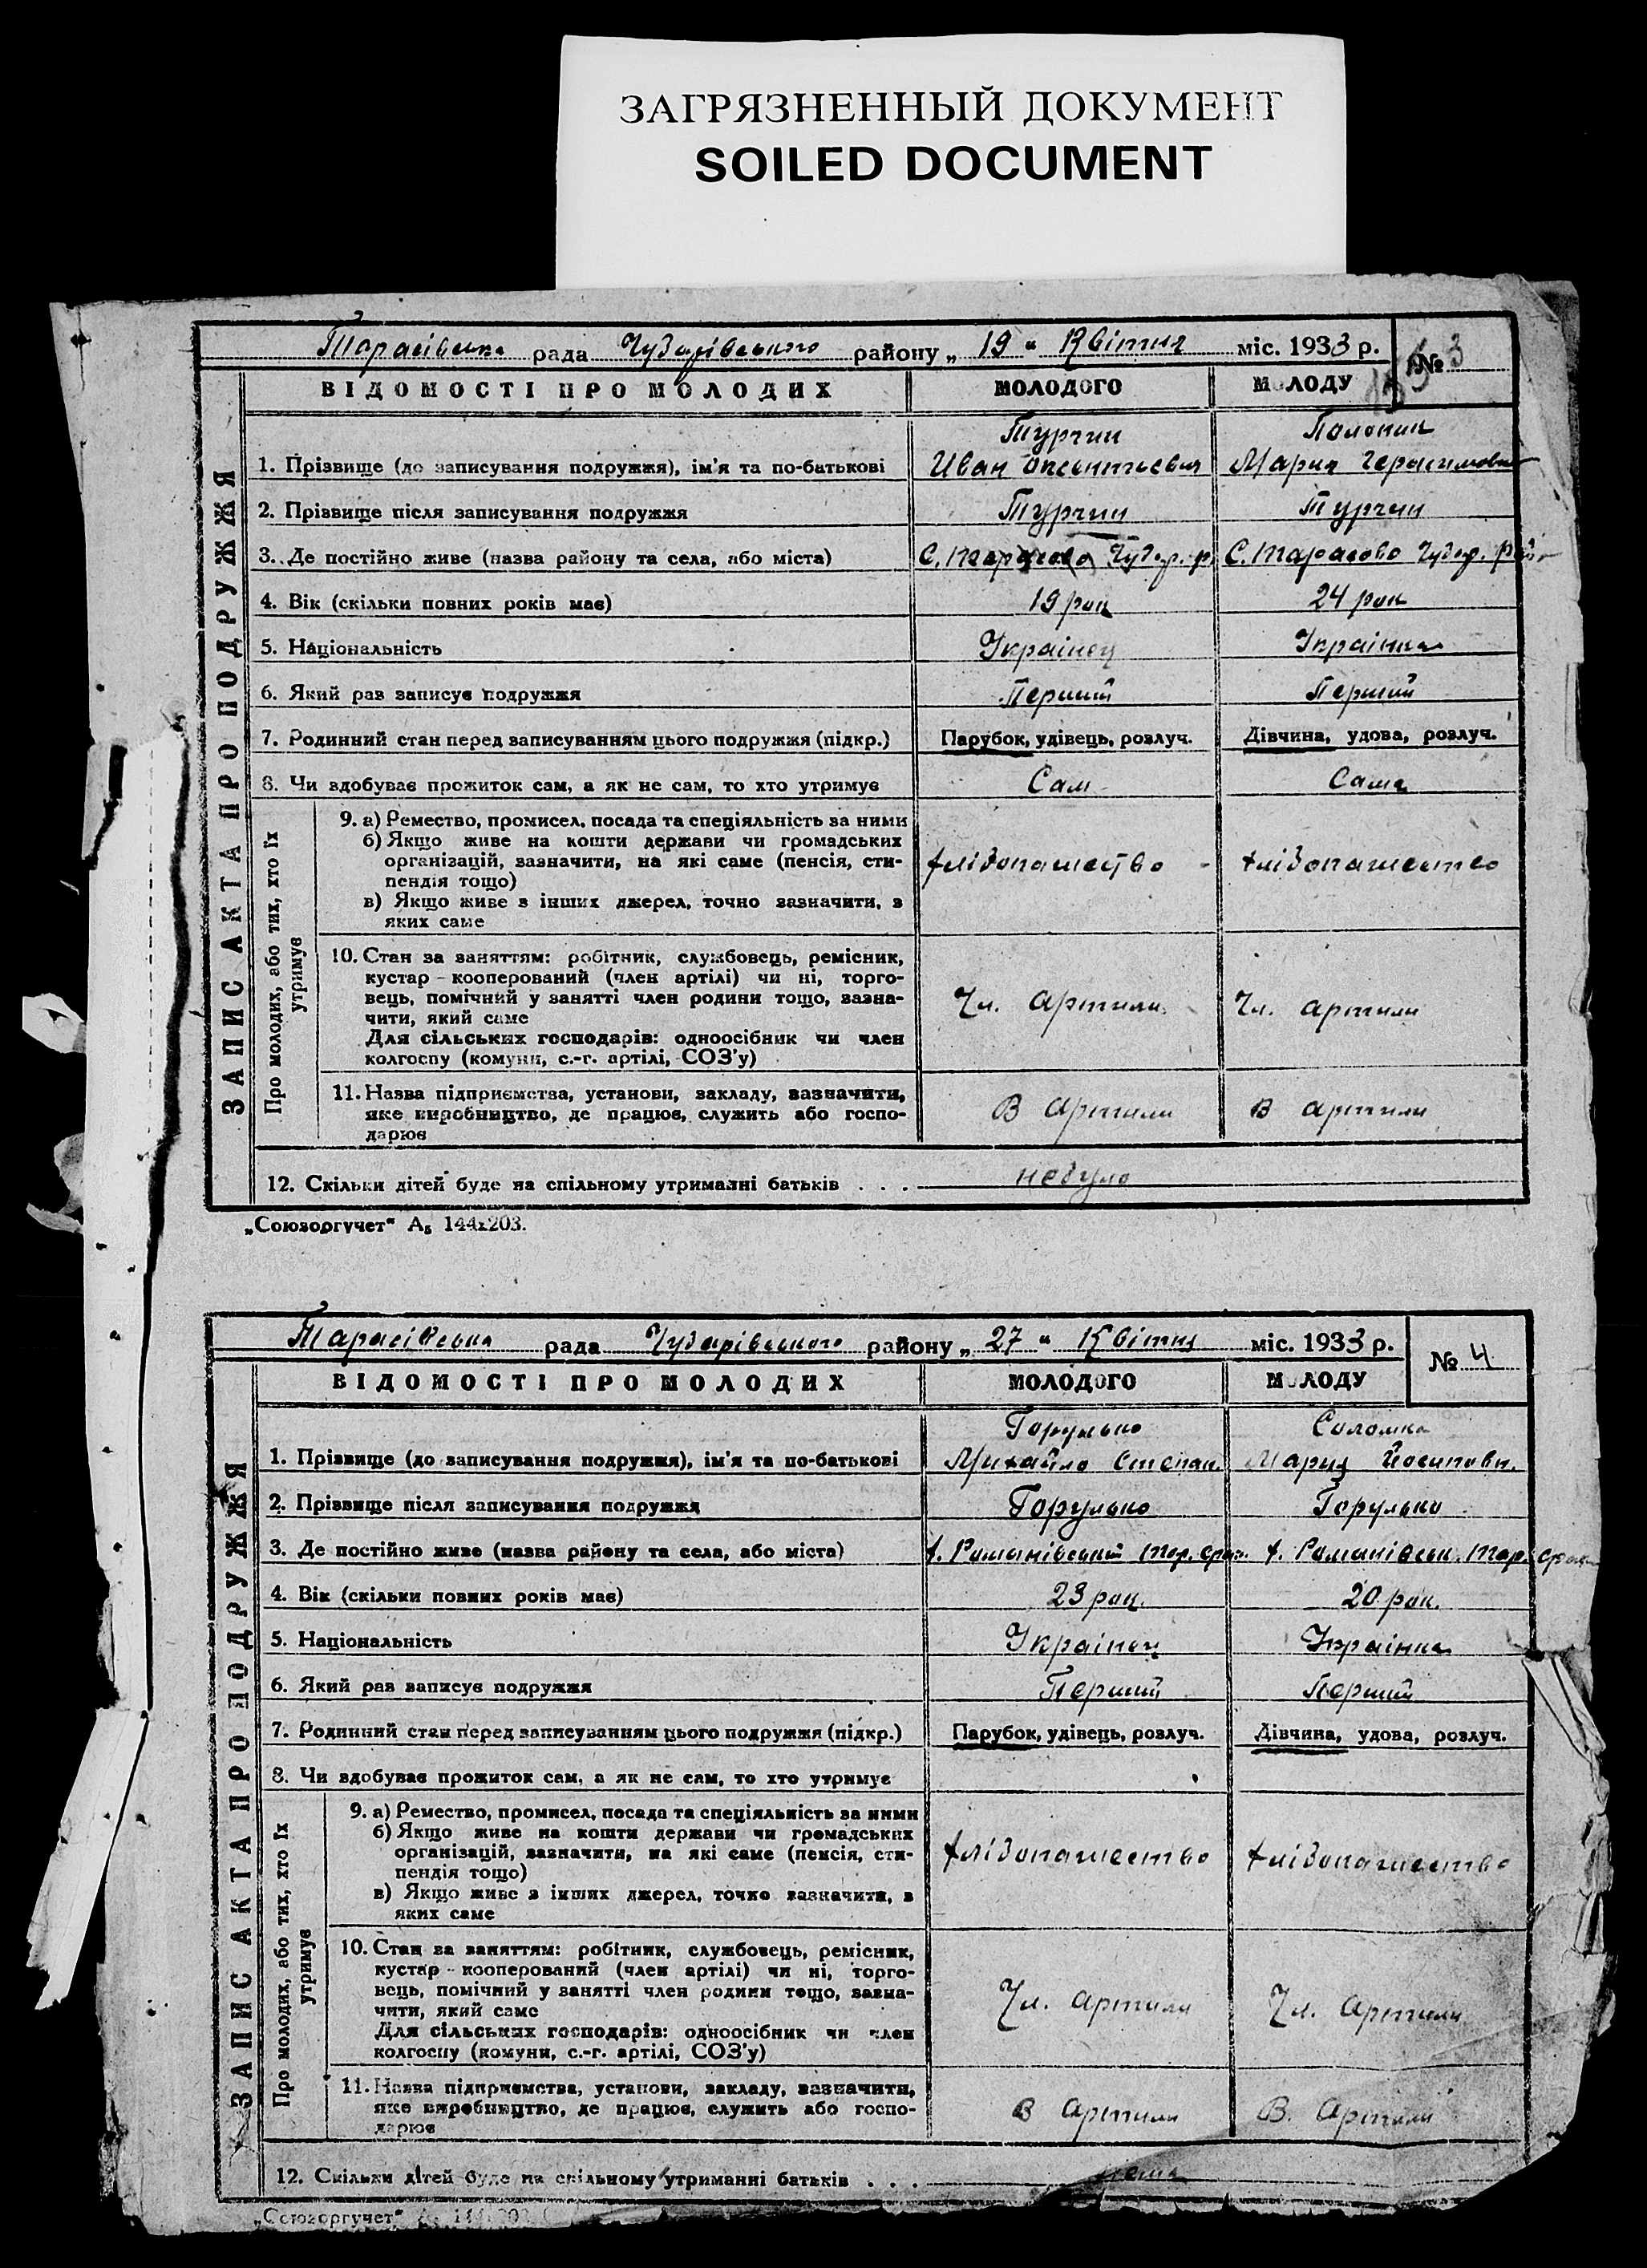 ЗАГРЯЗНЕННЫЙ ДОКУМЕНТ
SOILED DOCUMENT
Тарасівська рада Чубарівського району „ 19 “ Квітня міс. 1933 р.
№ 3
ВІДОМОСТІ ПРО МОЛОДИХ
МОЛОДОГО
МОЛОДУ
ЗАПИС АКТА ПРО ПОДРУЖЖЯ
Турчин
1. Прізвище (до записування подружжя), ім'я та по-батькові Иван Мария Герасимовн
2. Прізвище після записування подружжя Турчин Турчин
3. Де постійно живе (назва району та села, або міста) С. Тарасово Чубар. р. С. Тарасово Чубар. рай
4. Вік (скільки повних років має) 19 роц 24 рок
5. Національність Українец Українка
6. Який раз записує подружжя Перший Перший
7. Родинний стан перед записуванням цього подружжя (підкр.) Парубок, удівець, розлуч. Дівчина, удова, розлуч.
8. Чи здобуває прожиток сам, а як не сам, то хто утримує Сам Сама
Про молодих, або тих, хто їх утримує
9. а) Ремество, промисел, посада та спеціяльність за ними
б) Якщо живе на кошти держави чи громадських
організацій, зазначити, на які саме (пенсія, сти- хлібопашество хлібопашество
пендія тощо)
в) Якщо живе з інших джерел, точно зазначити, з
яких саме
10. Стан за заняттям: робітник, службовець, ремісник,
кустар - кооперований (член артілі) чи ні, торго-
вець, помічний у занятті член родини тощо, зазна- Чл. артили Чл. артили
чити, який саме
Для сільських господарів: одноосібник чи член
колгоспу (комуни, с.-г. артілі, СОЗ'у)
11. Назва підприємства, установи, закладу, зазначити,
яке виробництво, де працює, служить або госпо- В артили В артили
дарює
12. Скільки дітей буде на спільному утриманні батьків . . . небуло
„Союзоргучет“ А₅ 144х203.
Тарасівська рада Чубарівського району „ 27 “ Квітня міс. 1933 р.
№ 4
ВІДОМОСТІ ПРО МОЛОДИХ
МОЛОДОГО
МОЛОДУ
ЗАПИС АКТА ПРО ПОДРУЖЖЯ
Горулько Соломка
1. Прізвище (до записування подружжя), ім'я та по-батькові Михайло Степан. Мария Йосиповн.
2. Прізвище після записування подружжя Горулько Горулько
3. Де постійно живе (назва району та села, або міста) х. Романівський Тар. х. Романівськ. Тар.
4. Вік (скільки повних років має) 23 роц. 20 рок.
5. Національність Українец Українка
6. Який раз записує подружжя Перший Перший
7. Родинний стан перед записуванням цього подружжя (підкр.) Парубок, удівець, розлуч. Дівчина, удова, розлуч.
8. Чи здобуває прожиток сам, а як не сам, то хто утримує
Про молодих, або тих, хто їх утримує
9. а) Ремество, промисел, посада та спеціяльність за ними
б) Якщо живе на кошти держави чи громадських
організацій, зазначити, на які саме (пенсія, сти- хлібопашество хлібопашество
пендія тощо)
в) Якщо живе з інших джерел, точно зазначити, з
яких саме
10. Стан за заняттям: робітник, службовець, ремісник,
кустар - кооперований (член артілі) чи ні, торго-
вець, помічний у занятті член родини тощо, зазна- Чл. артили Чл. Артили
чити, який саме
Для сільських господарів: одноосібник чи член
колгоспу (комуни, с.-г. артілі, СОЗ'у)
11. Назва підприємства, установи, закладу, зазначити,
яке виробництво, де працює, служить або госпо- в Артили В. Артили
дарює
12. Скільки дітей буде на спільному утриманні батьків . . .
„Союзоргучет“ А₅ 144х203.